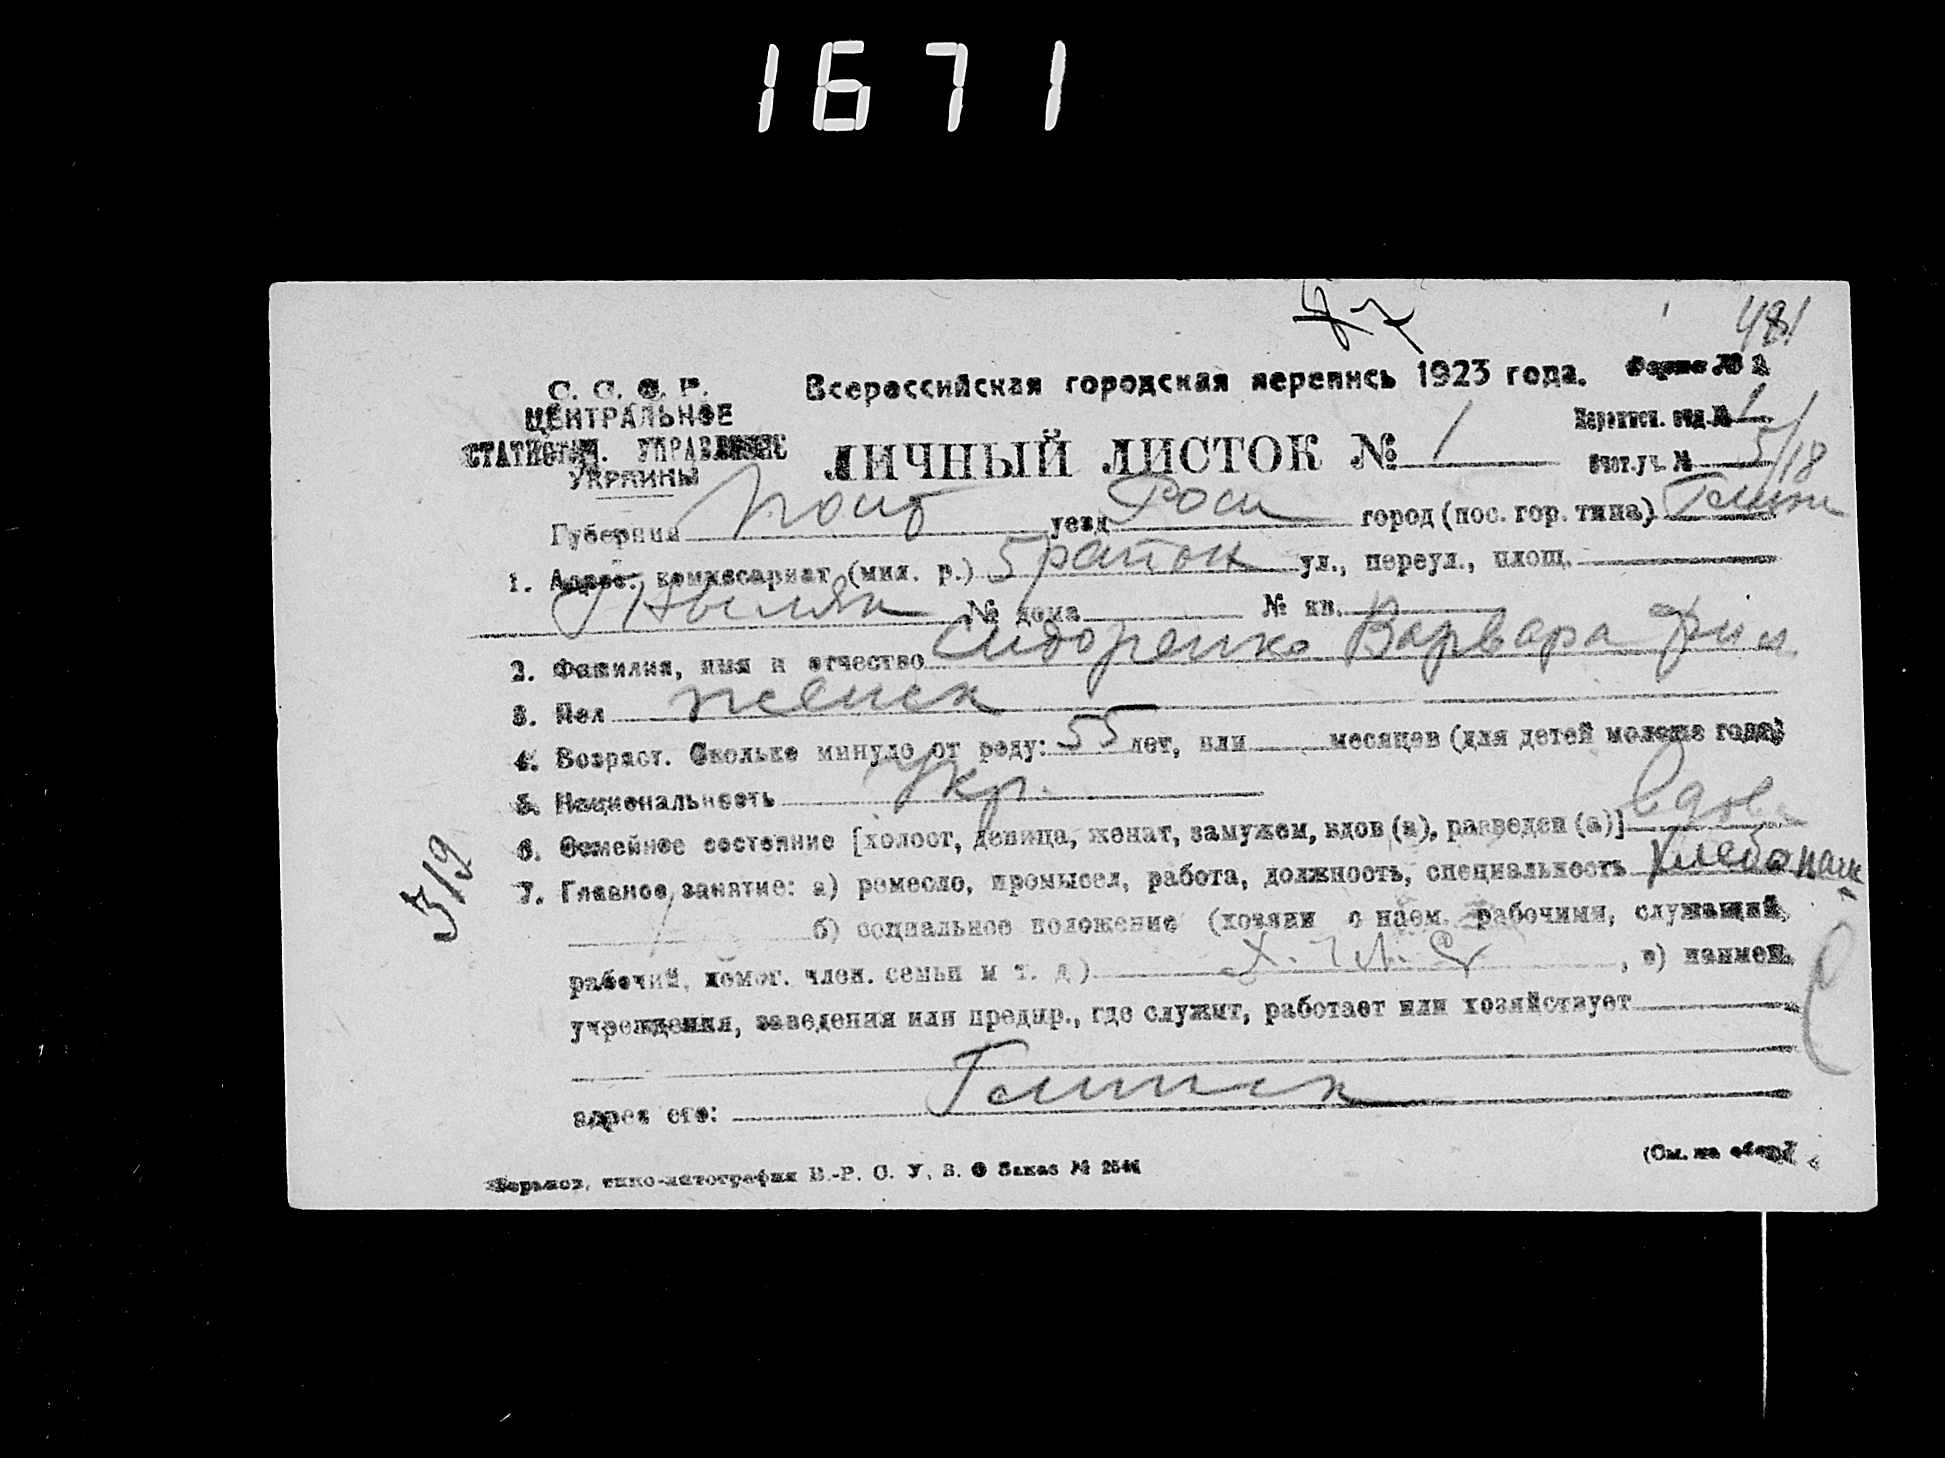 1671
47
481
С. С. С. Р.
ЦЕНТРАЛЬНОЕ
СТАТИСТИЧ. УПРАВЛЕНИЕ
УКРАИНЫ
Всероссийская городская перепись 1923 года.
Форма № 2
Переписн. отд. № 1
ЛИЧНЫЙ ЛИСТОК № 1
Счет. уч. № 5/18
Губерния Полт уезд город (пос. гор. типа)
1. Адрес: комиссариат (мил. р.) 5 район ул., переул., площ.
№ дома № кв.
2. Фамилия, имя и отчество Сидоренко Варвара Фил
3. Пол женск
4. Возраст. Сколько минуло от роду: 55 лет, или месяцев (для детей моложе года)
5. Национальность Укр.
6. Семейное состояние [холост, девица, женат, замужем, вдов (а), разведен (а)] вдова
7. Главное занятие: а) ремесло, промысел, работа, должность, специальность хлебопаш
319
б) социальное положение (хозяин с наем. рабочими, служащий,
рабочий, помог. член. семьи и т. д.) , в) наимен.
учреждения, заведения или предпр., где служит, работает или хозяйствует
адрес его:
типо-литография В.-Р. С. У. В. О Заказ № 2544
(См. на обор.)